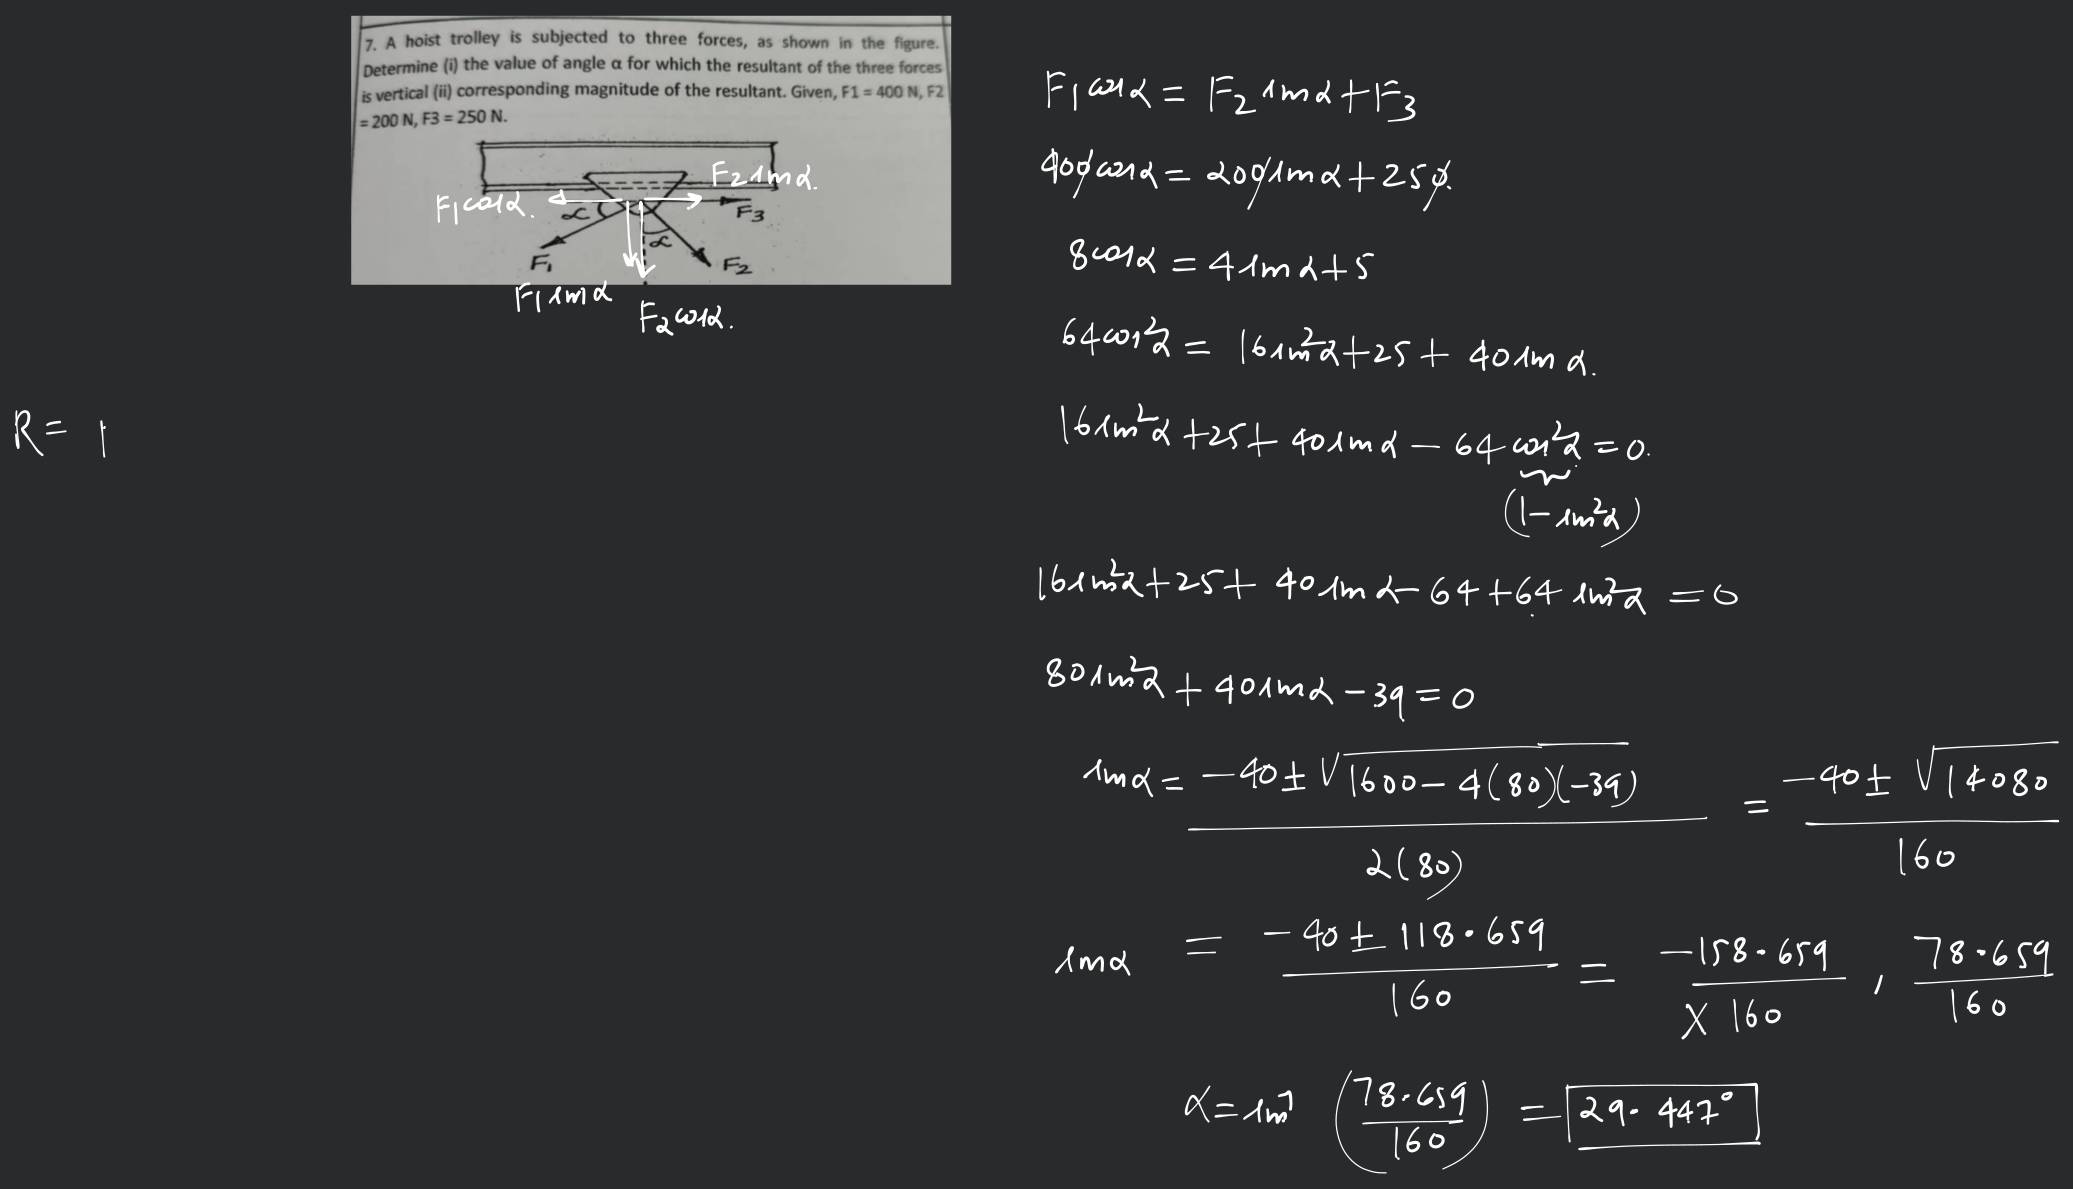 7. A hoist trolley is subjected to three forces, as shown in the figure.
Determine (i) the value of angle α for which the resultant of the three forces
is vertical (ii) corresponding magnitude of the resultant. Given, F1 = 400 N, F2
= 200 N, F3 = 250 N.
F₂ sinα.
F₁cosα.
α
F₃
α
F₁
F₂
F₁ sinα
F₂ cosα.
R = |
F₁ cosα = F₂ sinα + F₃
400 cosα = 200 sinα + 250.
8cosα = 4 sinα + 5
64cos²α = 16sin²α + 25 + 40 sinα.
16sin²α + 25 + 40 sinα – 64 cos²α = 0.
(1 – sin²α)
16sin²α + 25 + 40 sinα – 64 + 64 sin²α = 0
80sin²α + 40sinα – 39 = 0
sinα = –40 ± √1600 – 4(80)(–39) / 2(80) = –40 ± √14080 / 160
sinα = –40 ± 118.659 / 160 = –158.659 / X 160 , 78.659 / 160
α = sin⁻¹ (78.659 / 160) = 29.447°